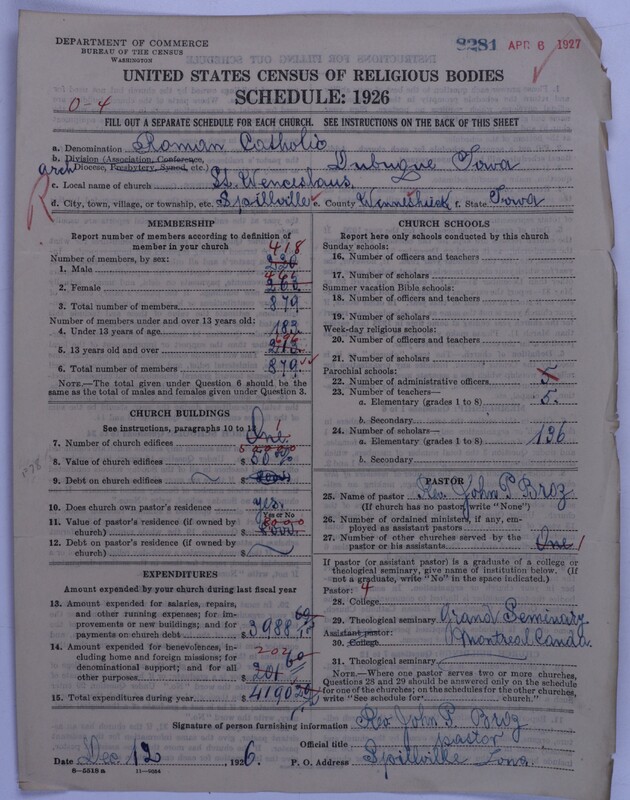 DEPARTMENT OF COMMERCE
BUREAU OF THE CENSUS
WASHINGTON
8281 APR 6 1927
UNITED STATES CENSUS OF RELIGIOUS BODIES
SCHEDULE: 1926
0-4
FILL OUT A SEPARATE SCHEDULE FOR EACH CHURCH. SEE INSTRUCTIONS ON THE BACK OF THIS SHEET
a. Denomination Roman Catholic
b. Division (Association, Conference,
arch Diocese, Presbytery, Synod, etc.) Dubuque Iowa
R
c. Local name of church St. Wenceslaus.
d. City, town, village, or township, etc. Spillville e. County Wenneshiek f. State Iowa
MEMBERSHIP
Report number of members according to definition of
member in your church
Number of members, by sex: 418
1. Male
2. Female
3. Total number of members 879
Number of members under and over 13 years old:
4. Under 13 years of age 183
5. 13 years old and over 696
6. Total number of members 879
NOTE.—The total given under Question 6 should be the
same as the total of males and females given under Question 3.
CHURCH BUILDINGS
See instructions, paragraphs 10 to 1
7. Number of church edifices One 1
8. Value of church edifices $
9. Debt on church edifices $
10. Does church own pastor's residence yes.
Yes or No
11. Value of pastor's residence (if owned by
church) $ 8000
12. Debt on pastor's residence (if owned by
church) $
EXPENDITURES
Amount expended by your church during last fiscal year
13. Amount expended for salaries, repairs,
and other running expenses; for im-
provements or new buildings; and for
payments on church debt $ 3988
14. Amount expended for benevolences, in-
cluding home and foreign missions; for
denominational support; and for all
other purposes $ 201 202
15. Total expenditures during year $ 4190
CHURCH SCHOOLS
Report here only schools conducted by this church
Sunday schools:
16. Number of officers and teachers
17. Number of scholars
Summer vacation Bible schools:
18. Number of officers and teachers
19. Number of scholars
Week-day religious schools:
20. Number of officers and teachers
21. Number of scholars
Parochial schools:
22. Number of administrative officers 5
23. Number of teachers—
a. Elementary (grades 1 to 8) 5.
b. Secondary
24. Number of scholars—
a. Elementary (grades 1 to 8) 136
b. Secondary
PASTOR
25. Name of pastor Rev John P Broz
(If church has no pastor, write "None")
26. Number of ordained ministers, if any, em-
ployed as assistant pastors
27. Number of other churches served by the
pastor or his assistants One 1
If pastor (or assistant pastor) is a graduate of a college or
theological seminary, give name of institution below. (If
not a graduate, write "No" in the space indicated.)
Pastor: 4
28. College
29. Theological seminary Grand Seminary
Assistant pastor:
30. College Montreal Canda.
31. Theological seminary
NOTE.—Where one pastor serves two or more churches,
Questions 28 and 29 should be answered only on the schedule
for one of the churches; on the schedules for the other churches,
write "See schedule for church."
Signature of person furnishing information Rev John P. Broz
Official title pastor
Date Dec 12, 1926. P. O. Address Spillville Iowa.
8-5518 a 11-9024